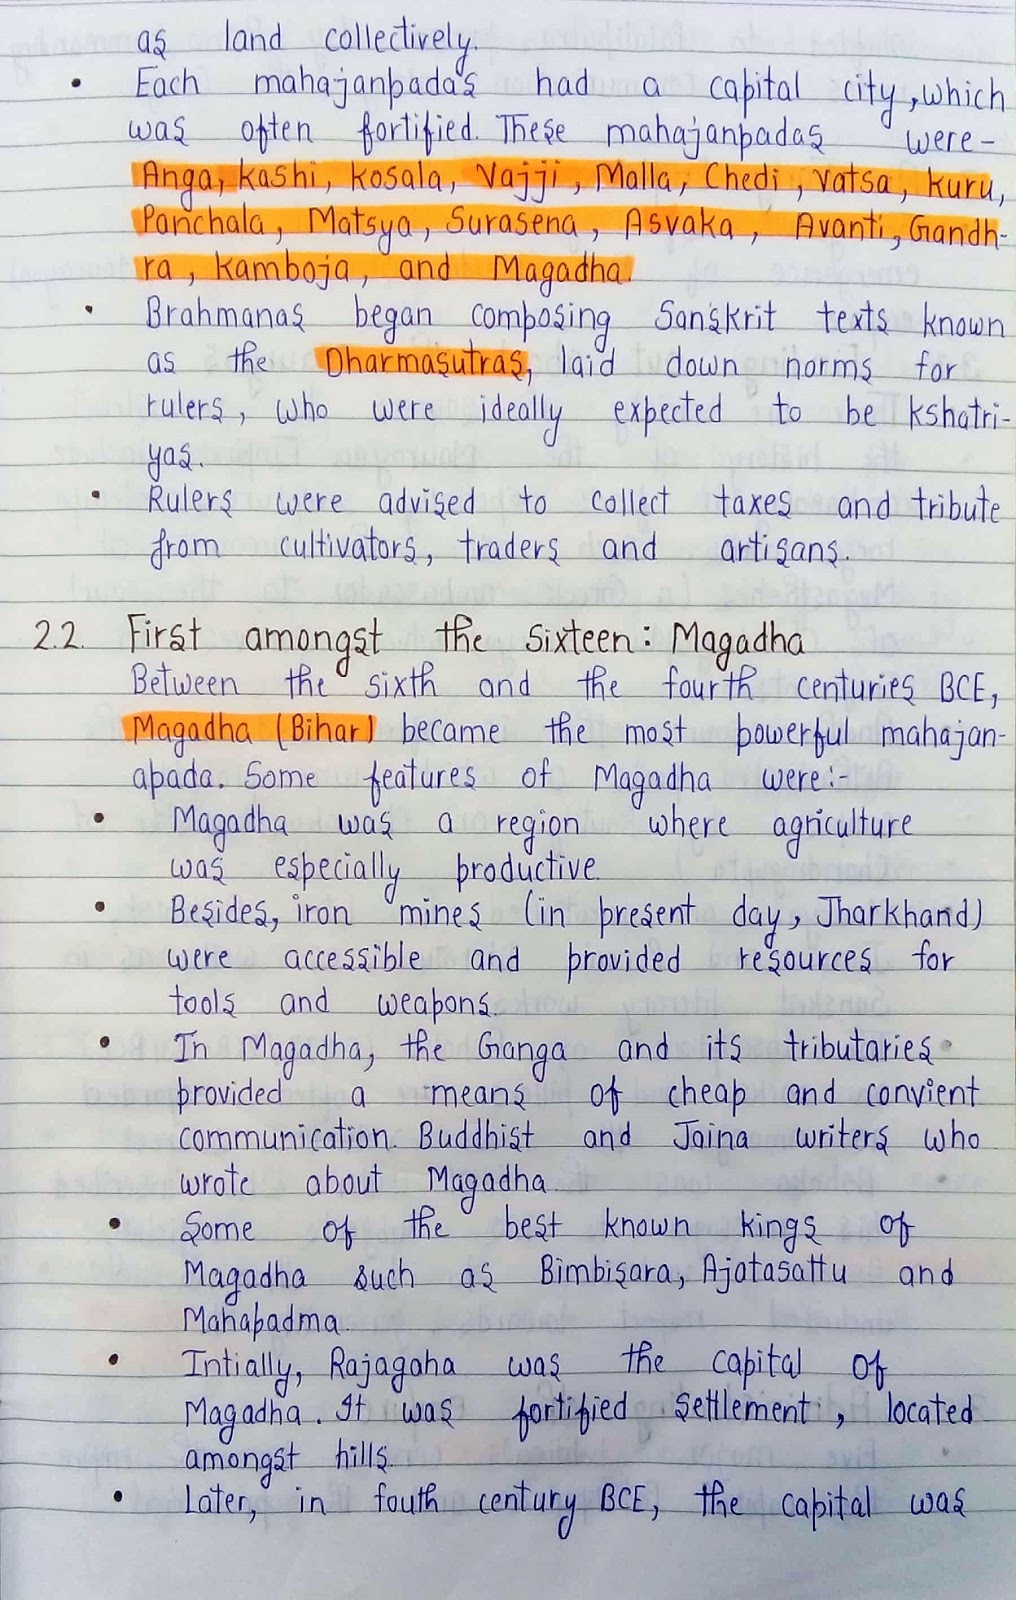 as land collectively.
• Each mahajanpadas had a capital city, which
was often fortified. These mahajanpadas were-
Anga, Kashi, Kosala, Vajji, Malla, Chedi, Vatsa, Kuru,
Panchala, Matsya, Surasena, Asvaka, Avanti, Gandh-
ra, Kamboja, and Magadha.
• Brahmanas began composing Sanskrit texts known
as the Dharmasutras, laid down norms for
rulers, who were ideally expected to be kshatri-
yas.
• Rulers were advised to collect taxes and tribute
from cultivators, traders and artisans.
2.2. First amongst the Sixteen: Magadha
Between the sixth and the fourth centuries BCE,
Magadha (Bihar) became the most powerful mahajan-
apada. Some features of Magadha were:-
• Magadha was a region where agriculture
was especially productive.
• Besides, iron mines (in present day, Jharkhand)
were accessible and provided resources for
tools and weapons.
• In Magadha, the Ganga and its tributaries
provided a means of cheap and convient
communication. Buddhist and Jaina writers who
wrote about Magadha.
• Some of the best known kings of
Magadha such as Bimbisara, Ajatasattu and
Mahapadma.
• Intially, Rajagaha was the capital of
Magadha. It was fortified settlement, located
amongst hills.
• Later, in fouth century BCE, the capital was